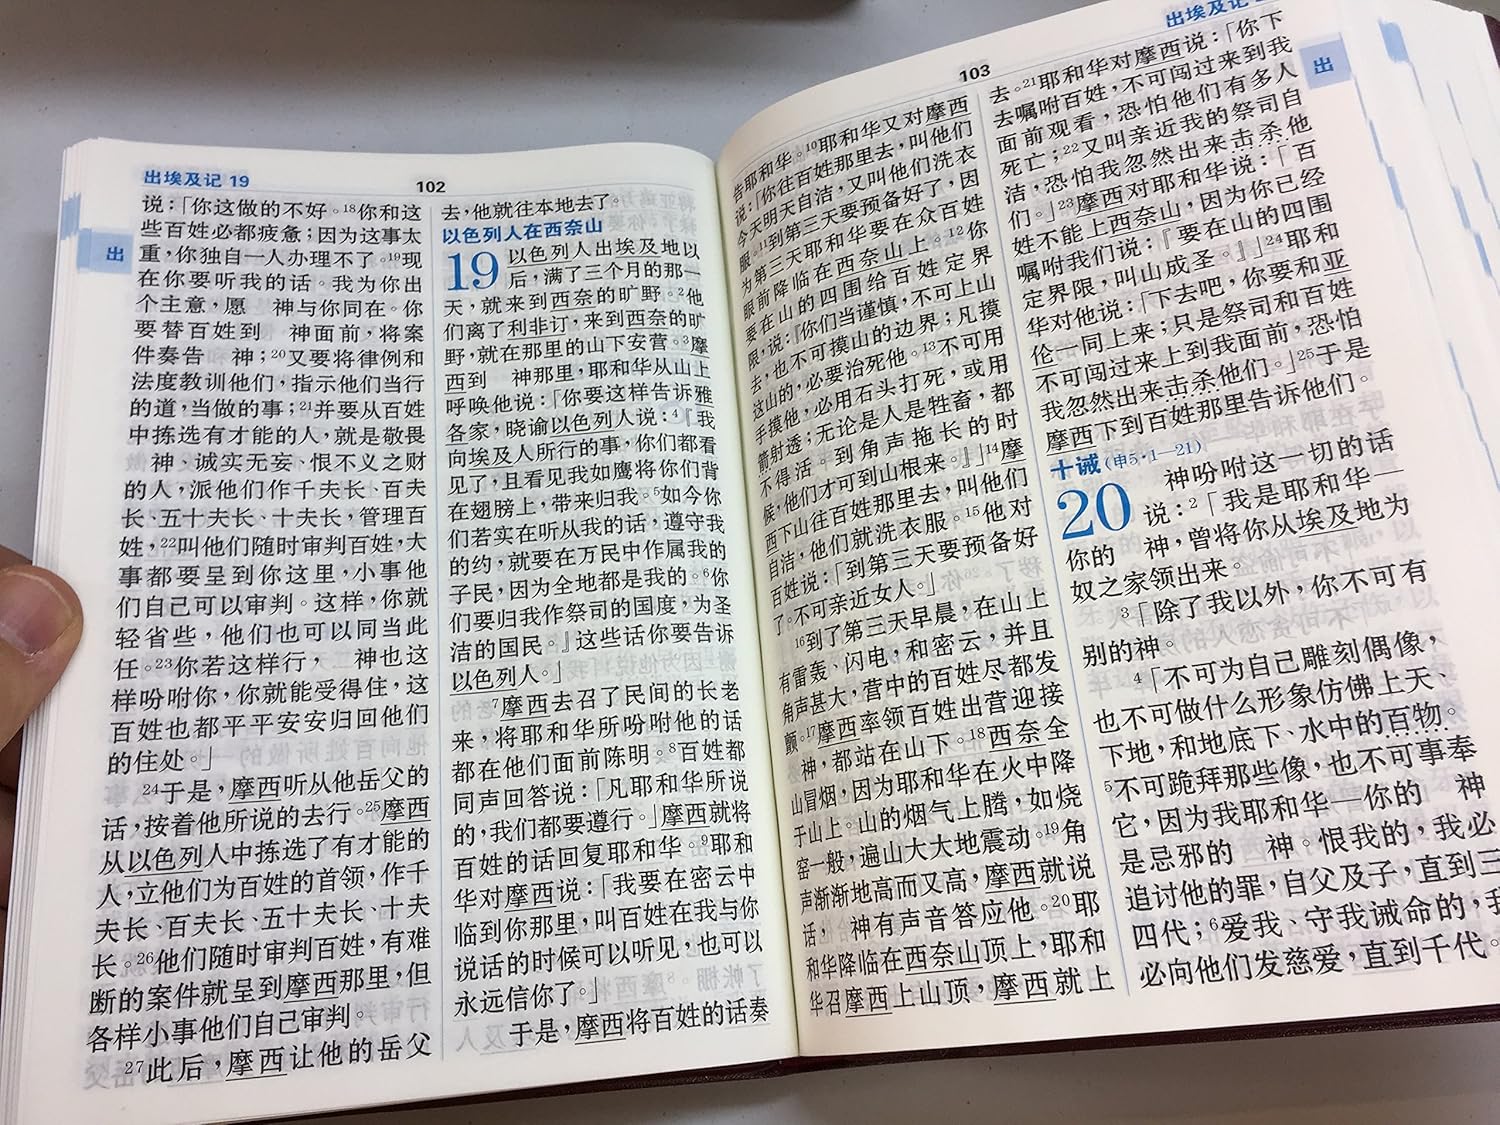 出埃及记 19
102
说：「你这做的不好。18你和这
些百姓必都疲惫；因为这事太
重，你独自一人办理不了。19现
在你要听我的话。我为你出
个主意，愿　神与你同在。你
要替百姓到　神面前，将案
件奏告　神；20又要将律例和
法度教训他们，指示他们当行
的道，当做的事；21并要从百姓
中拣选有才能的人，就是敬畏
　神、诚实无妄、恨不义之财
的人，派他们作千夫长、百夫
长、五十夫长、十夫长，管理百
姓，22叫他们随时审判百姓，大
事都要呈到你这里，小事他
们自己可以审判。这样，你就
轻省些，他们也可以同当此
任。23你若这样行，　神也这
样吩咐你，你就能受得住，这
百姓也都平平安安归回他们
的住处。」
24于是，摩西听从他岳父的
话，按着他所说的去行。25摩西
从以色列人中拣选了有才能的
人，立他们为百姓的首领，作千
夫长、百夫长、五十夫长、十夫
长。26他们随时审判百姓，有难
断的案件就呈到摩西那里，但
各样小事他们自己审判。
27此后，摩西让他的岳父
去，他就往本地去了。
以色列人在西奈山
19 以色列人出埃及地以
后，满了三个月的那一
天，就来到西奈的旷野。2他
们离了利非订，来到西奈的旷
野，就在那里的山下安营。3摩
西到　神那里，耶和华从山上
呼唤他说：「你要这样告诉雅
各家，晓谕以色列人说：4『我
向埃及人所行的事，你们都看
见了，且看见我如鹰将你们背
在翅膀上，带来归我。5如今你
们若实在听从我的话，遵守我
的约，就要在万民中作属我的
子民，因为全地都是我的。6你
们要归我作祭司的国度，为圣
洁的国民。』这些话你要告诉
以色列人。」
7摩西去召了民间的长老
来，将耶和华所吩咐他的话
都在他们面前陈明。8百姓都
同声回答说：「凡耶和华所说
的，我们都要遵行。」摩西就将
百姓的话回复耶和华。9耶和
华对摩西说：「我要在密云中
临到你那里，叫百姓在我与你
说话的时候可以听见，也可以
永远信你了。」
于是，摩西将百姓的话奏
出
103
出埃及记
告耶和华。10耶和华又对摩西
说：「你往百姓那里去，叫他们
今天明天自洁，又叫他们洗衣
服。11到第三天要预备好了，因
为第三天耶和华要在众百姓
眼前降临在西奈山上。12你
要在山的四围给百姓定界
限，说：『你们当谨慎，不可上山
去，也不可摸山的边界；凡摸
这山的，必要治死他。13不可用
手摸他，必用石头打死，或用
箭射透；无论是人是牲畜，都
不得活。到角声拖长的时
候，他们才可到山根来。』」14摩
西下山往百姓那里去，叫他们
自洁，他们就洗衣服。15他对
百姓说：「到第三天要预备好
了。不可亲近女人。」
16到了第三天早晨，在山上
有雷轰、闪电，和密云，并且
角声甚大，营中的百姓尽都发
颤。17摩西率领百姓出营迎接
　神，都站在山下。18西奈全
山冒烟，因为耶和华在火中降
于山上。山的烟气上腾，如烧
窑一般，遍山大大地震动。19角
声渐渐地高而又高，摩西就说
话，　神有声音答应他。20耶
和华降临在西奈山顶上，耶和
华召摩西上山顶，摩西就上
去。21耶和华对摩西说：「你下
去嘱咐百姓，不可闯过来到我
面前观看，恐怕他们有多人
死亡；22又叫亲近我的祭司自
洁，恐怕我忽然出来击杀他
们。」23摩西对耶和华说：「百
姓不能上西奈山，因为你已经
嘱咐我们说：『要在山的四围
定界限，叫山成圣。』」24耶和
华对他说：「下去吧，你要和亚
伦一同上来；只是祭司和百姓
不可闯过来上到我面前，恐怕
我忽然出来击杀他们。」25于是
摩西下到百姓那里告诉他们。
十诫（申5·1—21）
20 　神吩咐这一切的话
说：2「我是耶和华—
你的　神，曾将你从埃及地为
奴之家领出来。
3「除了我以外，你不可有
别的神。
4「不可为自己雕刻偶像，
也不可做什么形象仿佛上天、
下地，和地底下、水中的百物。
5不可跪拜那些像，也不可事奉
它，因为我耶和华—你的　神
是忌邪的　神。恨我的，我必
追讨他的罪，自父及子，直到三
四代；6爱我、守我诫命的，我
必向他们发慈爱，直到千代。
出